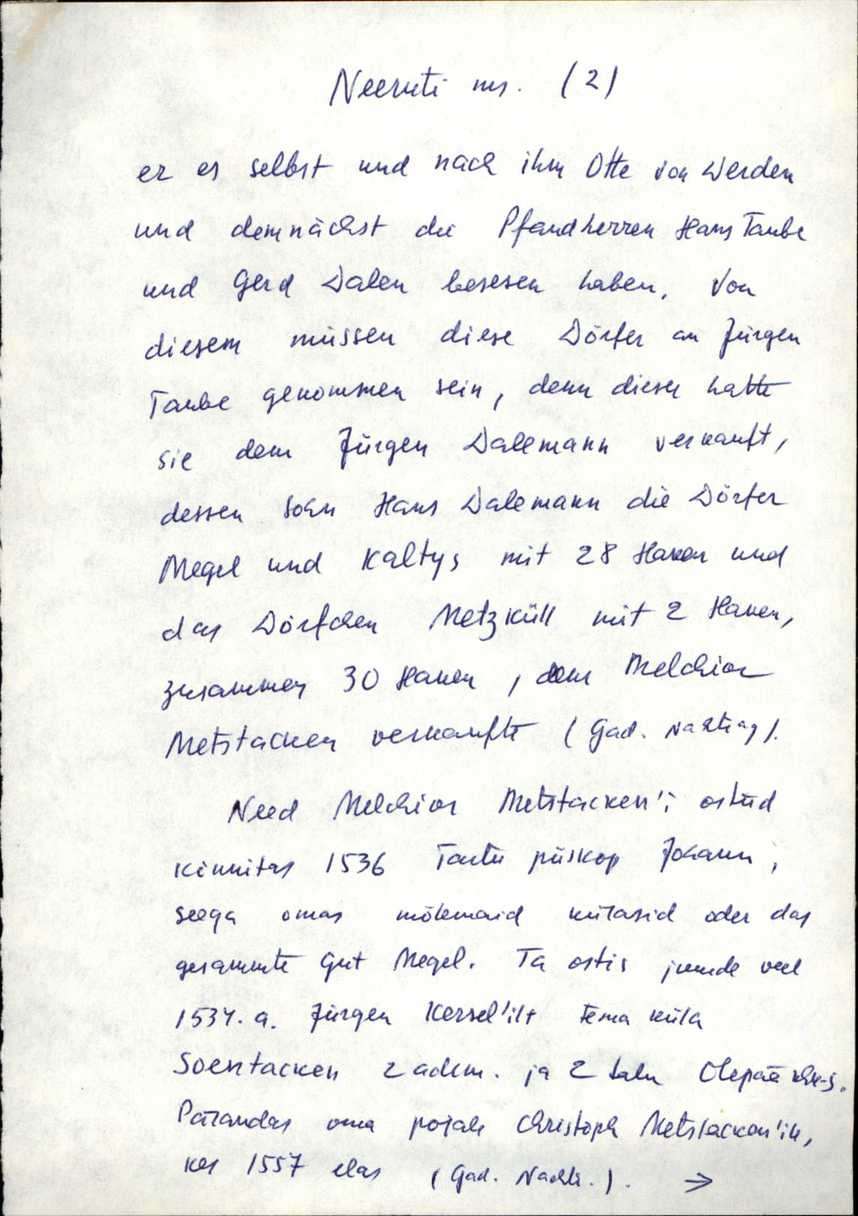 Neeruti ms. (2)
er es selbst und nach ihm Otte von Werden
und demnächst die Pfandherren Hans Taube
und Gerd Dalen besesen haben. Von
diesem müssen diese Dörfer an Jürgen
Taube genommen sein, denn dieser hatte
sie dem Jürgen Dalemann verkauft,
dessen Sohn Hans Dalemann die Dörfer
Megel und Kaltys mit 28 Haken und
das Dörfchen Metzküll mit 2 Haken,
zusammen 30 Haken, dem Melchior
Metstacken verkaufte (Gad. Nachtrag).
Need Melchior Metstacken'i ostud
kinnitas 1536 Tartu piiskop Johann,
seega omas mõlemaid külasid oder das
gesammte Gut Megel. Ta ostis juurde veel
1534. a. Jürgen Kersel'ilt tema küla
Soentacken 2 adm. ja 2 talu Otepää khk-s.
Pärandas oma pojale Christoph Metstacken'ile,
kes 1557 elas (Gad. Nachtr.). →